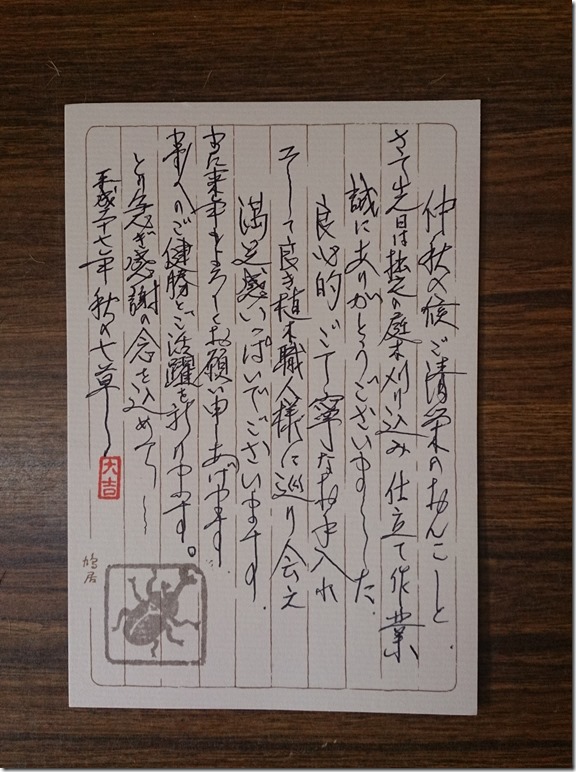 仲秋の候 ご清栄のおんことと
さて先日は拙宅の庭木刈り込み 仕立て作業
誠にありがとうございました
良心的 ご丁寧なお手入れ
そして良き植木職人様に巡り会え
満足感いっぱいでございます
また来年もよろしくお願い申しあげます
皆々のご健勝とご活躍を祈ります。
とり急ぎ感謝の念を込めて
平成二十七年 秋の七草
大吉
鳩居